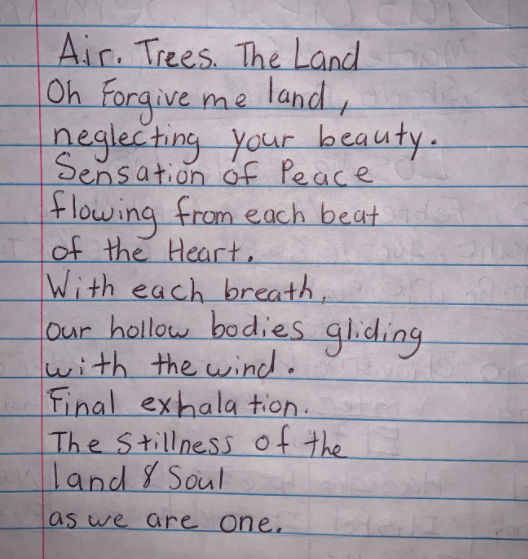 Air. Trees. The Land
Oh Forgive me land,
neglecting your beauty.
Sensation of Peace
flowing from each beat
of the Heart.
With each breath,
our hollow bodies gliding
with the wind.
Final exhalation.
The Stillness of the
land & Soul
as we are one.